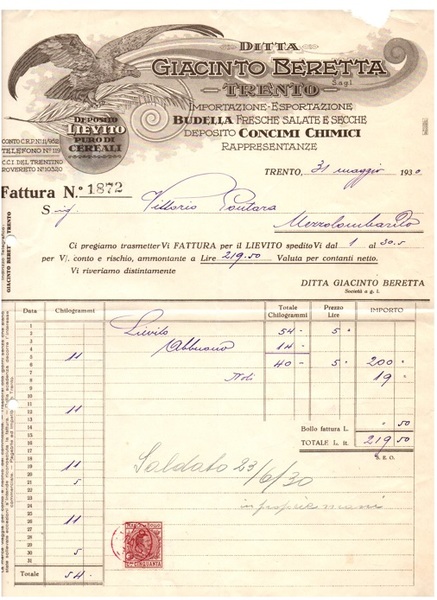 DITTA
GIACINTO BERETTA
S.a.g.l.
TRENTO
IMPORTAZIONE - ESPORTAZIONE
BUDELLA FRESCHE SALATE E SECCHE
DEPOSITO CONCIMI CHIMICI
RAPPRESENTANZE
DEPOSITO
LIEVITO
PURO DI
CEREALI
TELEFONO N° 119
C.C.I. DEL TRENTINO
TRENTO, 31 maggio 1930
Fattura N.° 1872
Sig. Vittorio
Mezzolombardo
Ci pregiamo trasmetterVi FATTURA per il LIEVITO spedito Vi dal 1 al 30.5
per V/. conto e rischio, ammontante a Lire 219.50 Valuta per contanti netto.
Vi riveriamo distintamente
DITTA GIACINTO BERETTA
Società a g. l.
Data Chilogrammi Totale Chilogrammi Prezzo Lire IMPORTO
1
2 Lievito 54 - 5
3
4 Abbuono 14 -
5 11
6 40 - 5 200
7 Noli 19
8
13 11
Bollo fattura L. 50
TOTALE L. it. 219 50
S. E. O.
20 11
21 5
Saldato 23/6/30
in proprie mani
27 11
30 5
31
Totale 54 -
CINQUANTA